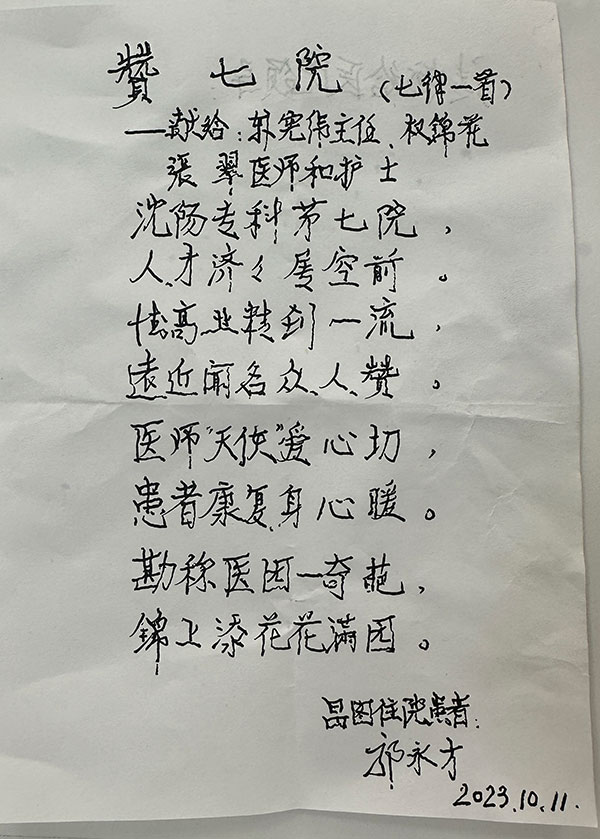 贊七院（七律一首）
——献给：苏宪伟主任、权錦花
張翠医师和护士
沈阳专科第七院，
人才济々属空前。
德高业精到一流，
遠近闻名众人贊。
医师“天使”爱心切，
患者康复身心暖。
勘称医园一奇葩，
錦上添花花满园。
昌图住院患者：
郭永才
2023.10.11.